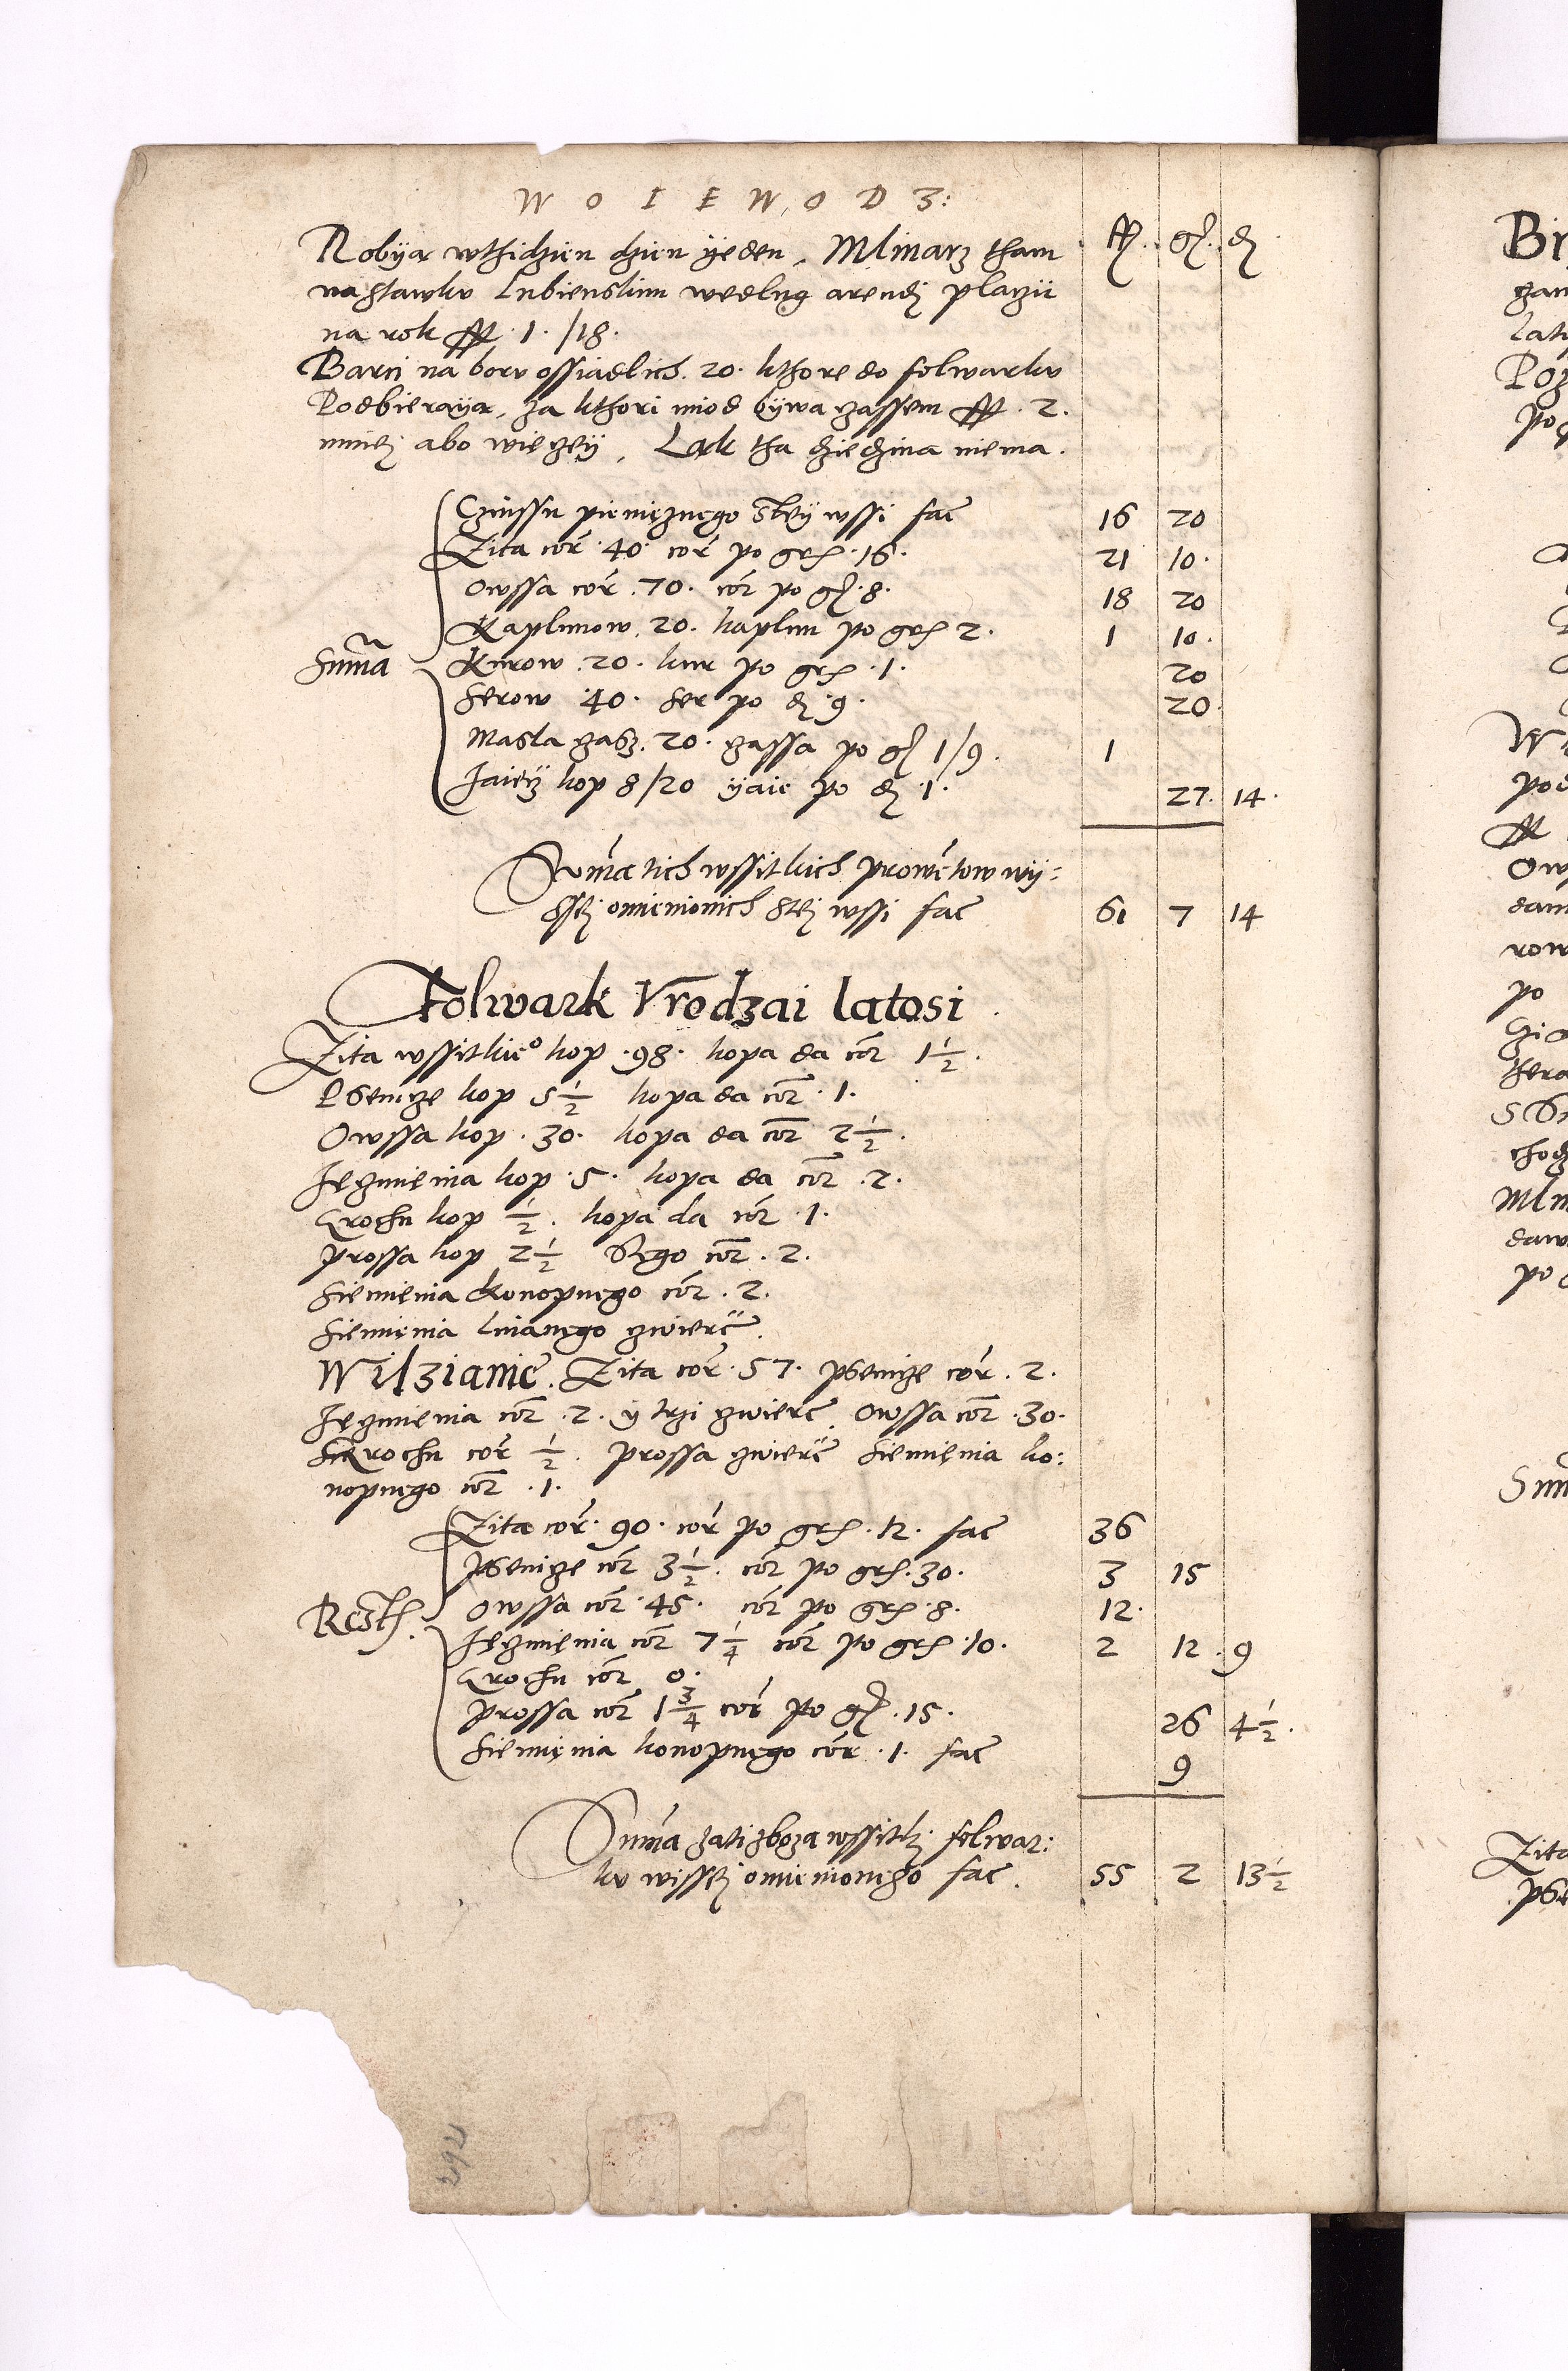 W O I E W O D Z:
fl. gſ. đ
Robÿą wthidzien dzien ÿeden, Mlinarz tham
na stawku Lubienskim wedlug arendj placzii
na rok fl. 1. /18.
Barci na boru ossiadlich. 20. kthore do folwarku
Podbieraÿą, za kthori miod bÿwa czassem fl. 2.
mniej abo wieczeÿ, Lak tha dziedzina niema.
Czinssu pieniężnego steÿ wssi fac̃ 16 20
Zita cor̃ 40 cor̃ po grſ. 16. 21 10.
Owssa cor̃ .70. cor̃ po gſ. 8. 18 20
Kaplunow. 20. kaplun po grſ 2. 1 10.
Sum̃a Kurow .20. kur po grſ .1. 20
Serow 40. ser po đ .9. 20.
Masla fasz. 20. fassa po gſ 1/9. 1
Jaiecz kop 8/20 ÿaie po đ .1. 27. 14.
Sum̃a tich wssitkich prowẽtow wÿ:
ssej omienionich stej wssi fac̃ 61 7 14
Folwark Vrodzai latosi
Zita wssitkieº kop .98. kopa da cor̃ 1 1/2.
Psenicze kop 5 1/2 kopa da cor̃ .1.
Owssa kop .30. kopa da cor̃ 2 1/2.
Jęczmięnia kop .5. kopa da cor̃ .2.
Grochu kop 1/2. kopa da cor̃ .1.
Prossa kop 2 1/2 Stego cor̃ .2.
Siemięnia konopnego cor̃ .2.
Siemięnia lnianego czwierc̃.
Wiszianie. Zita cor̃ .57. psenicze cor̃ .2.
Jęczmięnia cor̃ .2. ÿ trzi czwierc̃. Owssa cor̃ .30.
Grochu cor̃ 1/2. Prossa czwierc̃ Siemięnia ko:
nopnego cor̃ .1.
Zita cor̃ .90. cor̃ po grſ .12. fac̃ 36
Psenicze cor̃ 3 1/2. cor̃ po grſ. 30. 3 15
Resth. Owssa cor̃ .45. cor̃ po grſ .8. 12.
Jęczmięnia cor̃ 7 1/4 cor̃ po grſ .10. 2 12 .9
Grochu cor̃ 0.
Prossa cor̃ 1 3/4 cor̃ po gſ .15. 26 4 1/2.
Siemięnia konopnego cor̃ .1. fac̃ 9
Sum̃a zati zboza wssitkj folwar:
ku wissej omienionego fac̃. 55 2 13 1/2
Bi